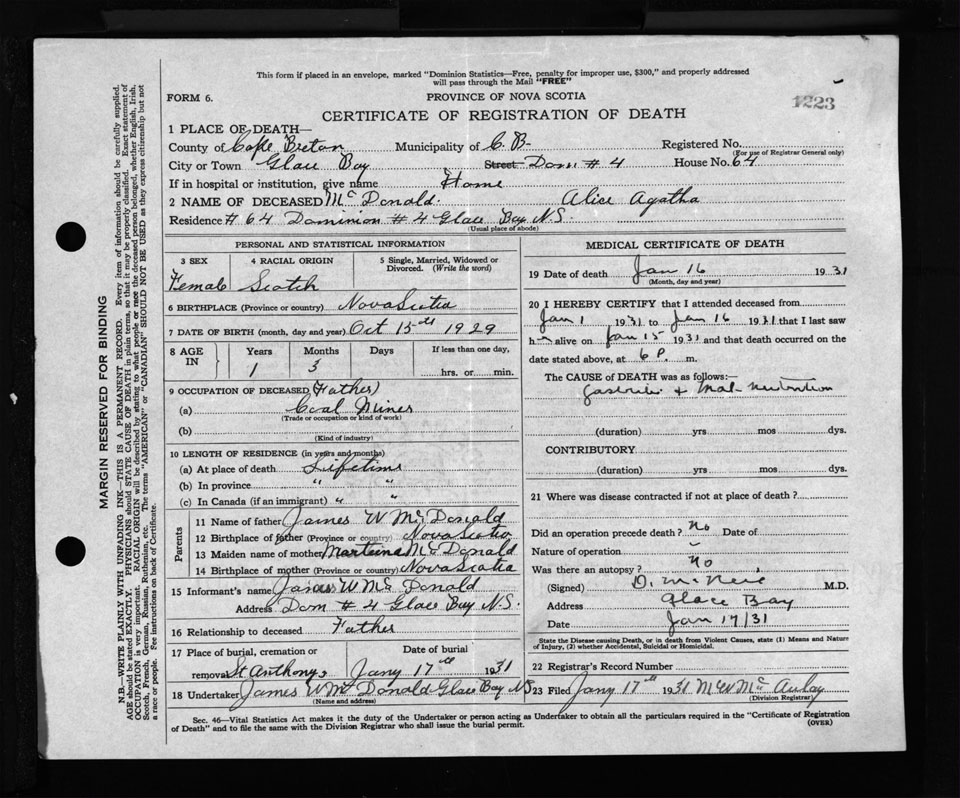 This form if placed in an envelope, marked "Dominion Statistics—Free, penalty for improper use, $300," and properly addressed
will pass through the Mail "FREE"
FORM 6.
PROVINCE OF NOVA SCOTIA
1223
CERTIFICATE OF REGISTRATION OF DEATH
1 PLACE OF DEATH—
County of Cape Breton Municipality of C. B- Registered No.
(For use of Registrar General only)
City or Town Glace Bay Street Dom # 4 House No. 64
If in hospital or institution, give name Home
2 NAME OF DECEASED McDonald. Alice Agatha
Residence # 64 Dominion # 4 Glace Bay N.S
(Usual place of abode)
PERSONAL AND STATISTICAL INFORMATION
3 SEX 4 RACIAL ORIGIN 5 Single, Married, Widowed or
Divorced. (Write the word)
Female Scotch
6 BIRTHPLACE (Province or country) Nova Scotia
7 DATE OF BIRTH (month, day and year) Oct 15th 1929
8 AGE IN Years Months Days If less than one day,
1 3 hrs. or min.
9 OCCUPATION OF DECEASED (Father)
(a) Coal Miner
(Trade or occupation or kind of work)
(b)
(Kind of industry)
10 LENGTH OF RESIDENCE (in years and months)
(a) At place of death Lifetime
(b) In province " "
(c) In Canada (if an immigrant) " "
Parents
11 Name of father James W McDonald
12 Birthplace of father (Province or country) Nova Scotia
13 Maiden name of mother McDonald
14 Birthplace of mother (Province or country) Nova Scotia
15 Informant's name James W McDonald
Address Dom # 4 Glace Bay N.S.
16 Relationship to deceased Father
17 Place of burial, cremation or Date of burial
removal St Anthonys Jany 17th 1931
18 Undertaker James W McDonald Glace Bay NS
(Name and address)
MEDICAL CERTIFICATE OF DEATH
19 Date of death Jan 16 1931
(Month, day and year)
20 I HEREBY CERTIFY that I attended deceased from
Jan 1 1931 to Jan 16 1931 that I last saw
h alive on Jan 15 1931 and that death occurred on the
date stated above, at 6 P. m.
The CAUSE OF DEATH was as follows:—
Gastritis & Mal-nutrition
(duration) yrs mos dys.
CONTRIBUTORY
(duration) yrs mos dys.
21 Where was disease contracted if not at place of death?
Did an operation precede death? No Date of
Nature of operation –
Was there an autopsy? No
(Signed) M.D.
Address Glace Bay
Date Jan 17/31
State the Disease causing Death, or in death from Violent Causes, state (1) Means and Nature
of Injury, (2) whether Accidental, Suicidal or Homicidal.
22 Registrar's Record Number
23 Filed Jany 17th 1931 McAulay
(Division Registrar)
Sec. 46—Vital Statistics Act makes it the duty of the Undertaker or person acting as Undertaker to obtain all the particulars required in the "Certificate of Registration
of Death" and to file the same with the Division Registrar who shall issue the burial permit.
(OVER)
MARGIN RESERVED FOR BINDING
N.B.—WRITE PLAINLY WITH UNFADING INK—THIS IS A PERMANENT RECORD. Every item of information should be carefully supplied.
AGE should be stated EXACTLY. PHYSICIANS should STATE CAUSE OF DEATH in plain terms, so that it may be properly classified. Exact statement of
OCCUPATION is very important. RACIAL ORIGIN will be described by stating to what people or race the deceased person belonged, whether English, Irish,
Scotch, French, German, Russian, Ruthenian, etc. The terms "AMERICAN" or "CANADIAN" SHOULD NOT BE USED as they express citizenship but not
a race or people. See instructions on back of Certificate.